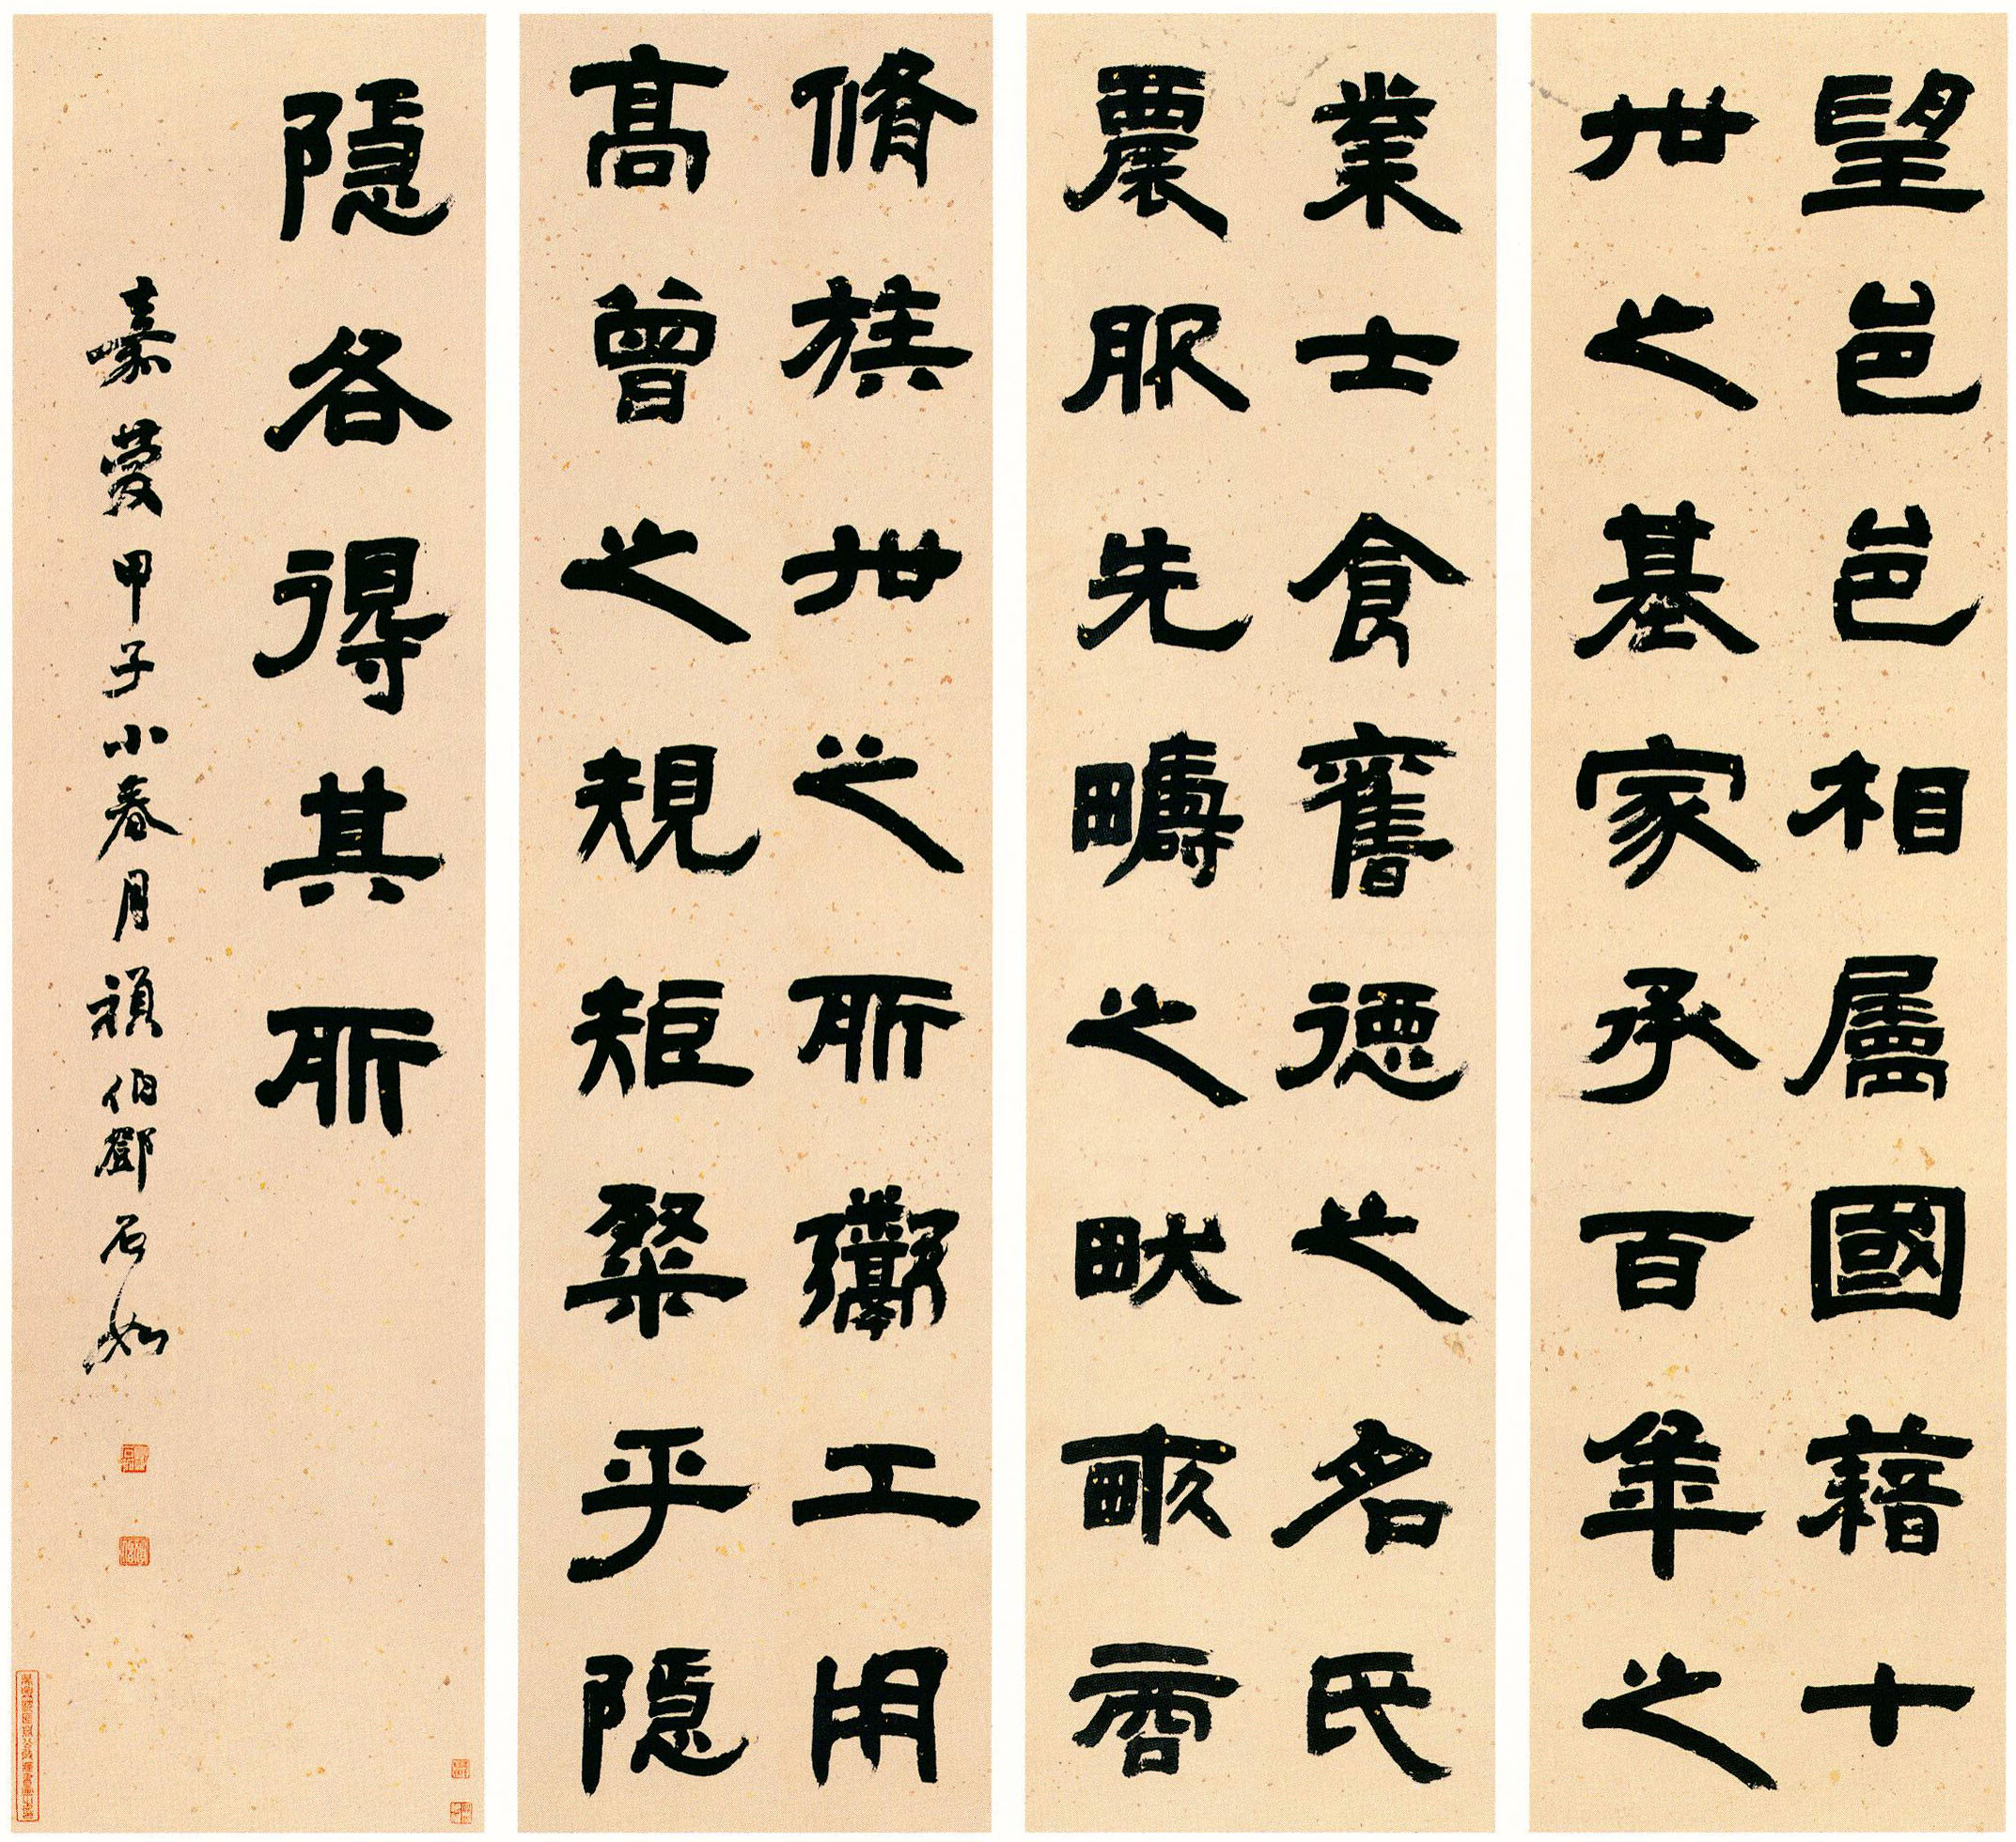 望邑邑相屬國藉十
世之基家承百年之
業士食舊德之名氏
農服先疇之畎畝商
脩族世之所鬻工用
高曾之規矩粲乎隱
隱各得其所
嘉慶甲子小春月頑伯鄧石如